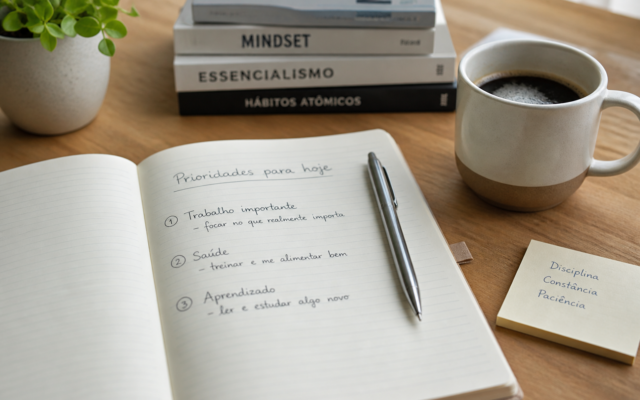 MINDSET
ESSENCIALISMO
HÁBITOS ATÔMICOS
Prioridades para hoje
1 Trabalho importante
- focar no que realmente importa
2 Saúde
- treinar e me alimentar bem
3 Aprendizado
- ler e estudar algo novo
Disciplina
Constância
Paciência